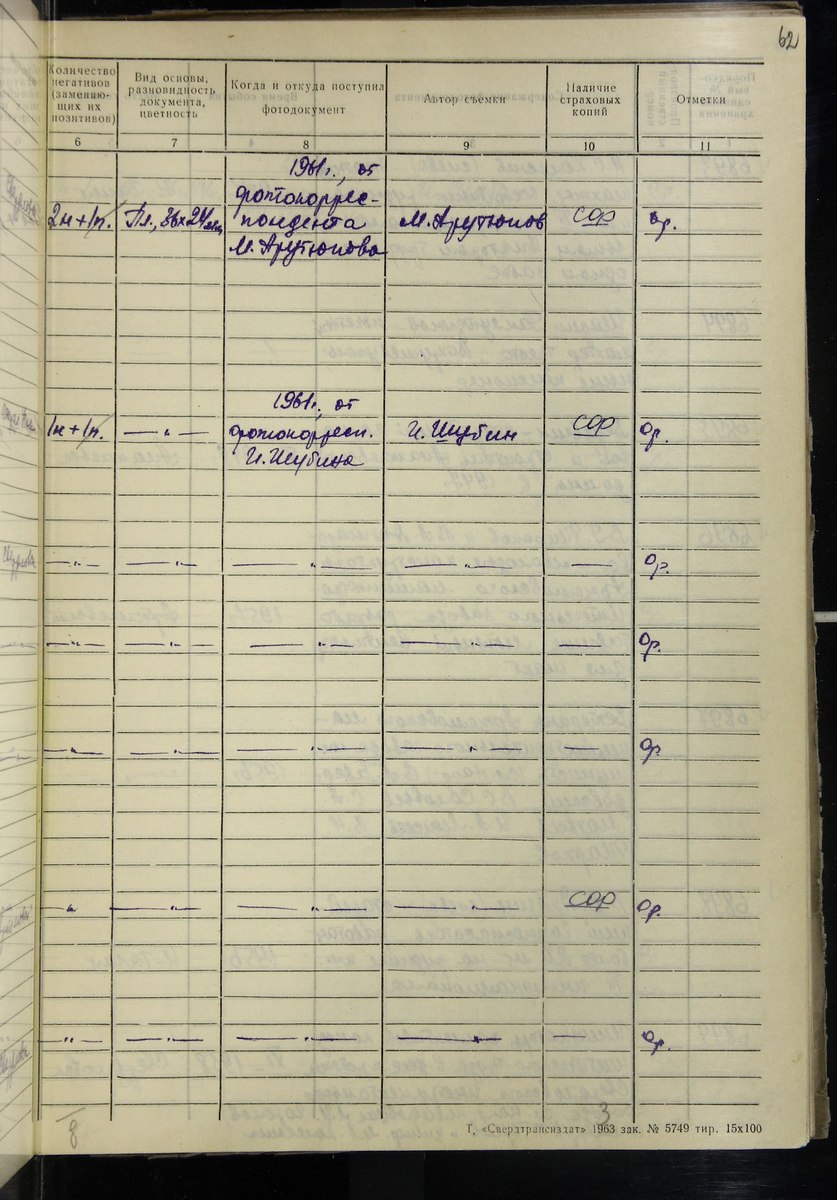 62
Количество негативов (заменяю- щих их позитивов)
Вид основы, разновидность документа, цветность
Когда и откуда поступил фотодокумент
Автор съемки
Наличие страховых копий
Отметки
6 7 8 9 10 11
1961г., от
фотокоррес-
2н+1п. Пл., 36х24мм пондента М. Арутюнов сор Ор.
М. Арутюнова
1961г., от
1н+1п. — " — фотокорресп. И. Шубин сор Ор.
И. Шубина
— " — — " — — " — — " — — Ор.
— " — — " — — " — — " — — Ор.
— " — — " — — " — — " — — Ор.
— " — — " — — " — — " — сор Ор.
— " — — " — — " — — " — — Ор.
8
3
Т. «Свердтрансиздат» 1963 зак. № 5749 тир. 15х100